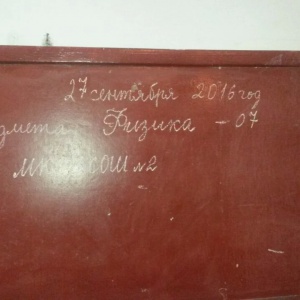 27 сентября 2016 год
дмета - Физика - 07
СОШ №2